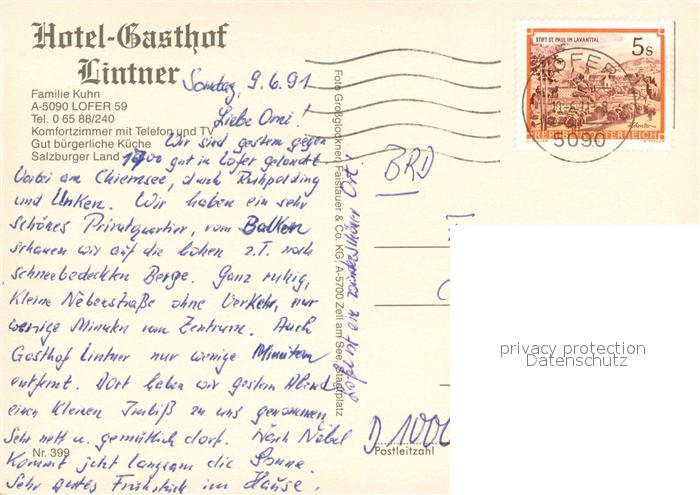 Hotel-Gasthof
Lintner
Familie Kuhn
A-5090 LOFER 59
Tel. 0 65 88/240
Komfortzimmer mit Telefon und TV
Gut bürgerliche Küche
Salzburger Land
Sonntag, 9.6.91
Liebe Omi!
Wir sind gestern gegen
1700 gut in Lofer gelandet
Vorbei am Chiemsee, durch Ruhpolding
und Unken. Wir haben ein sehr
schönes Privatquartier, vom Balkon
schauen wir auf die hohen z.T. noch
schneebedeckten Berge. Ganz ruhig,
kleine Nebenstraße ohne Verkehr, nur
wenige Minuten vom Zentrum. Auch
Gasthof Lintner nur wenige Minuten
entfernt. Dort haben wir gestern Abend
einen kleinen Imbiß zu uns genommen,
Sehr nett u. gemütlich dort. Nach Nebel
kommt jetzt langsam die Sonne.
Sehr gutes Frühstück im Hause.
Nr. 399
Foto Großglockner, Faistauer & Co. KG, A-5700 Zell am See, Stadtplatz
STIFT ST. PAUL IM LAVANTTAL
5s
REPUBLIK ÖSTERREICH
LOFER
5090
BRD
D 1000
Postleitzahl
privacy protection
Datenschutz